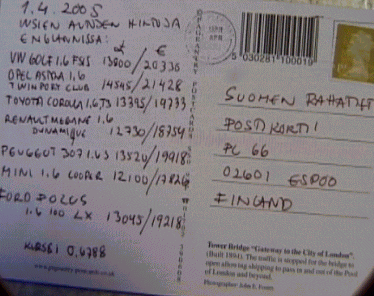 1.4.2005
UUSIEN AUTOJEN HINTOJA
ENGLANNISSA:
£ €
VW GOLF 1.6 FSIS 13800/20336
OPEL ASTRA 1.6
TWINPORT CLUB 14545/21428
TOYOTA COROLLA 1.6 T3 13395/19733
RENAULT MEGANE 1.6
DYNAMIQUE 12730/18754
PEUGEOT 307 1.6 S 13520/19918
MINI 1.6 COOPER 12100/17826
FORD FOCUS
1.6 100 LX 13045/19218
KURSSI 0,6788
5 030281 100019
SUOMEN RAHATIETO
POSTIKORTTI
PL 66
02601 ESPOO
FINLAND
Tower Bridge "Gateway to the City of London".
(Built 1894). The traffic is stopped for the bridge to
open allowing shipping to pass in and out of the Pool
of London and beyond.
Photographer: John E.